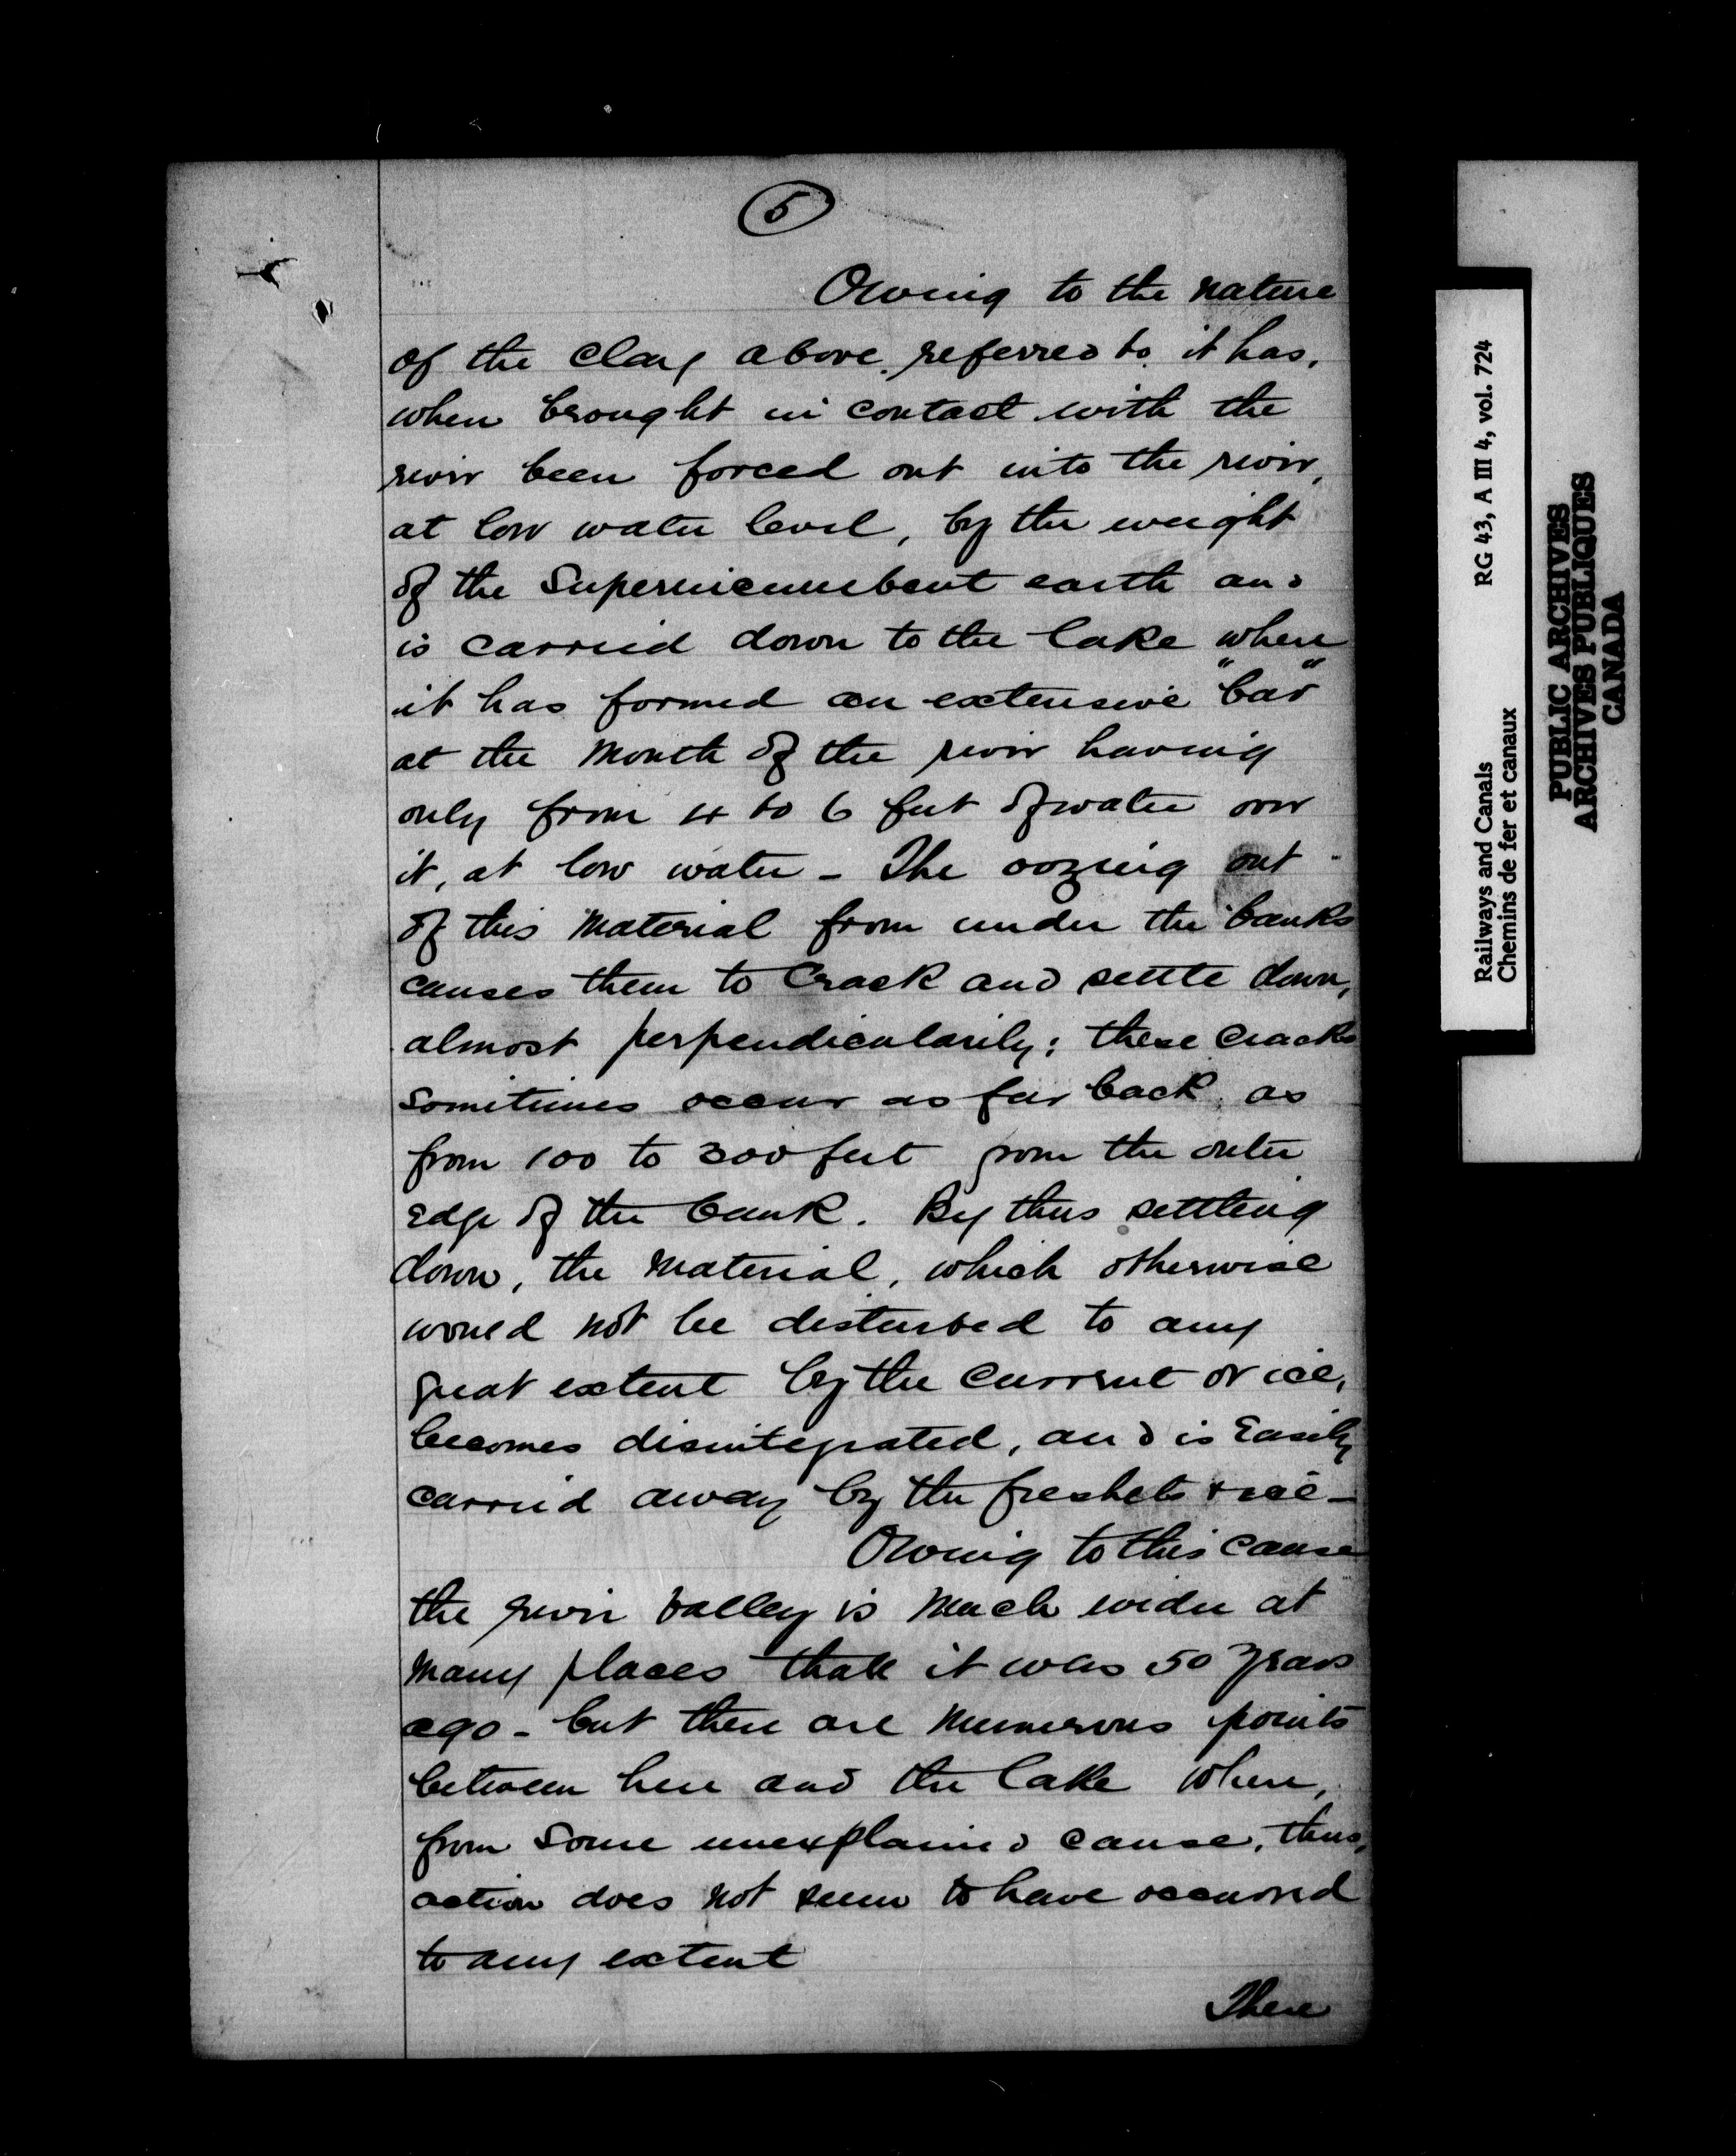 5
Owing to the nature
of the clay above referred to it has,
when brought in contact with the
river been forced out into the river,
at low water level, by the weight
of the superincumbent earth and
is carried down to the lake where
it has formed an extensive "bar"
at the mouth of the river having
only from 4 to 6 feet of water over
it, at low water - The oozing out
of this material from under the banks
causes them to crack and settle down,
almost perpendicularily; these cracks
sometimes occur as far back as
from 100 to 300 feet from the outer
edge of the bank. By thus settling
down, the material, which otherwise
would not be disturbed to any
great extent by the current or ice,
becomes disintegrated, and is easily
carried away by the freshets & ice -
Owing to this cause
the river valley is much wider at
many places than it was 50 years
ago - but there are numerous points
between here and the lake where,
from some unexplained cause, this,
action does not seem to have occurred
to any extent
There
Railways and Canals RG 43, A III 4, vol. 724
Chemins de fer et canaux
PUBLIC ARCHIVES
ARCHIVES PUBLIQUES
CANADA